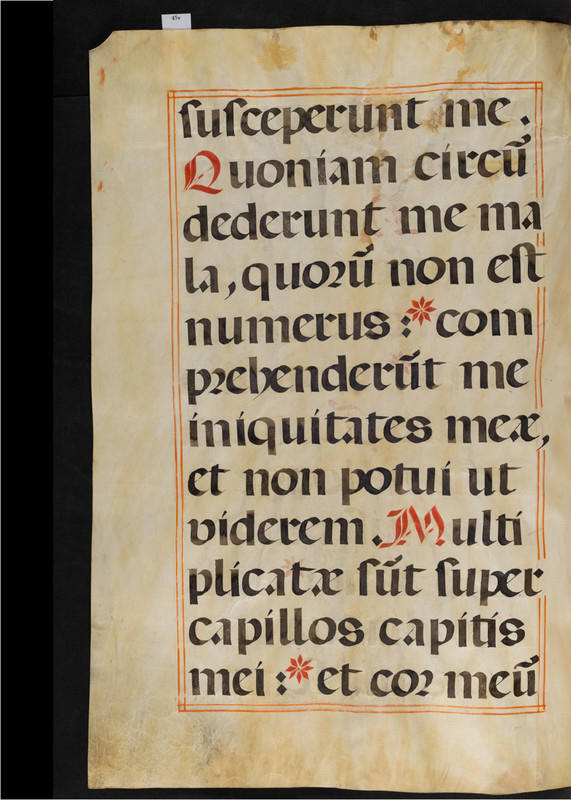 45v
ſuſceperunt me.
Quoniam circū
dederunt me ma
la, quoꝛū non eſt
numerus :* com
pꝛehenderūt me
iniquitates meæ,
et non potui ut
viderem. Multi
plicatæ ſūt ſuper
capillos capitis
mei :* et coꝛ meū